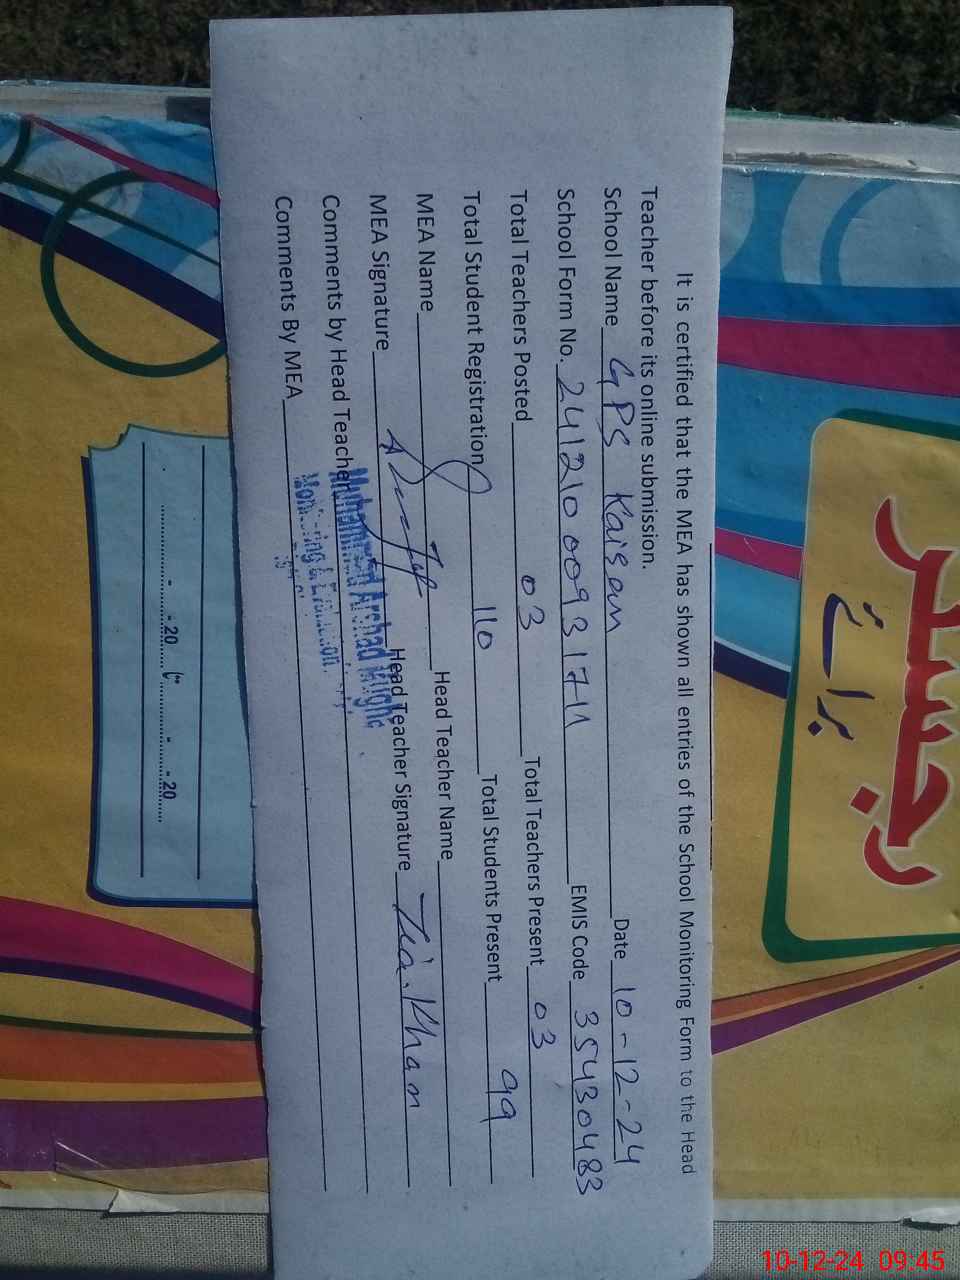 It is certified that the MEA has shown all entries of the School Monitoring Form to the Head
Teacher before its online submission.
School Name GPS Kaisam Date 10-12-24
School Form No. 2412100931711 EMIS Code 35430483
Total Teachers Posted 03 Total Teachers Present 03
Total Student Registration 110 Total Students Present 99
MEA Name Head Teacher Name
MEA Signature Head Teacher Signature Zia.Khan
Comments by Head Teacher
Muhammad Arshad Mughal
Comments By MEA
Monitoring & Evaluation
رجسٹر
برائے
20 - تا 20 -
10-12-24 09:45